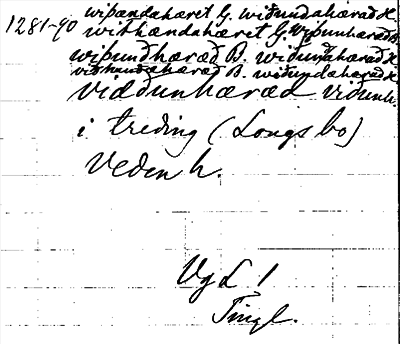 1281-90 wiþændahæret G. wiðundahærad K.
withændahæret G. wiþunhærad B.
wiþundhæræd B. wiðundahærað K.
withundahæræd B. wiðundahærað K.
viæðunhæræd viðunh.
i treding (Longs bo)
Veden h.
Vg L 1
Tingl.